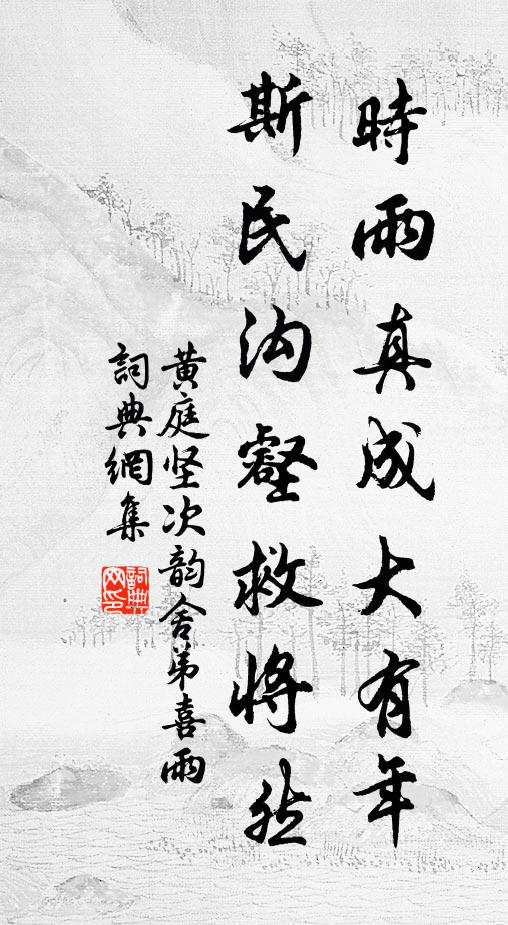 時雨真成大有年
斯民沟壑救将然
黄庭坚次韵舍弟喜雨
詞典網集